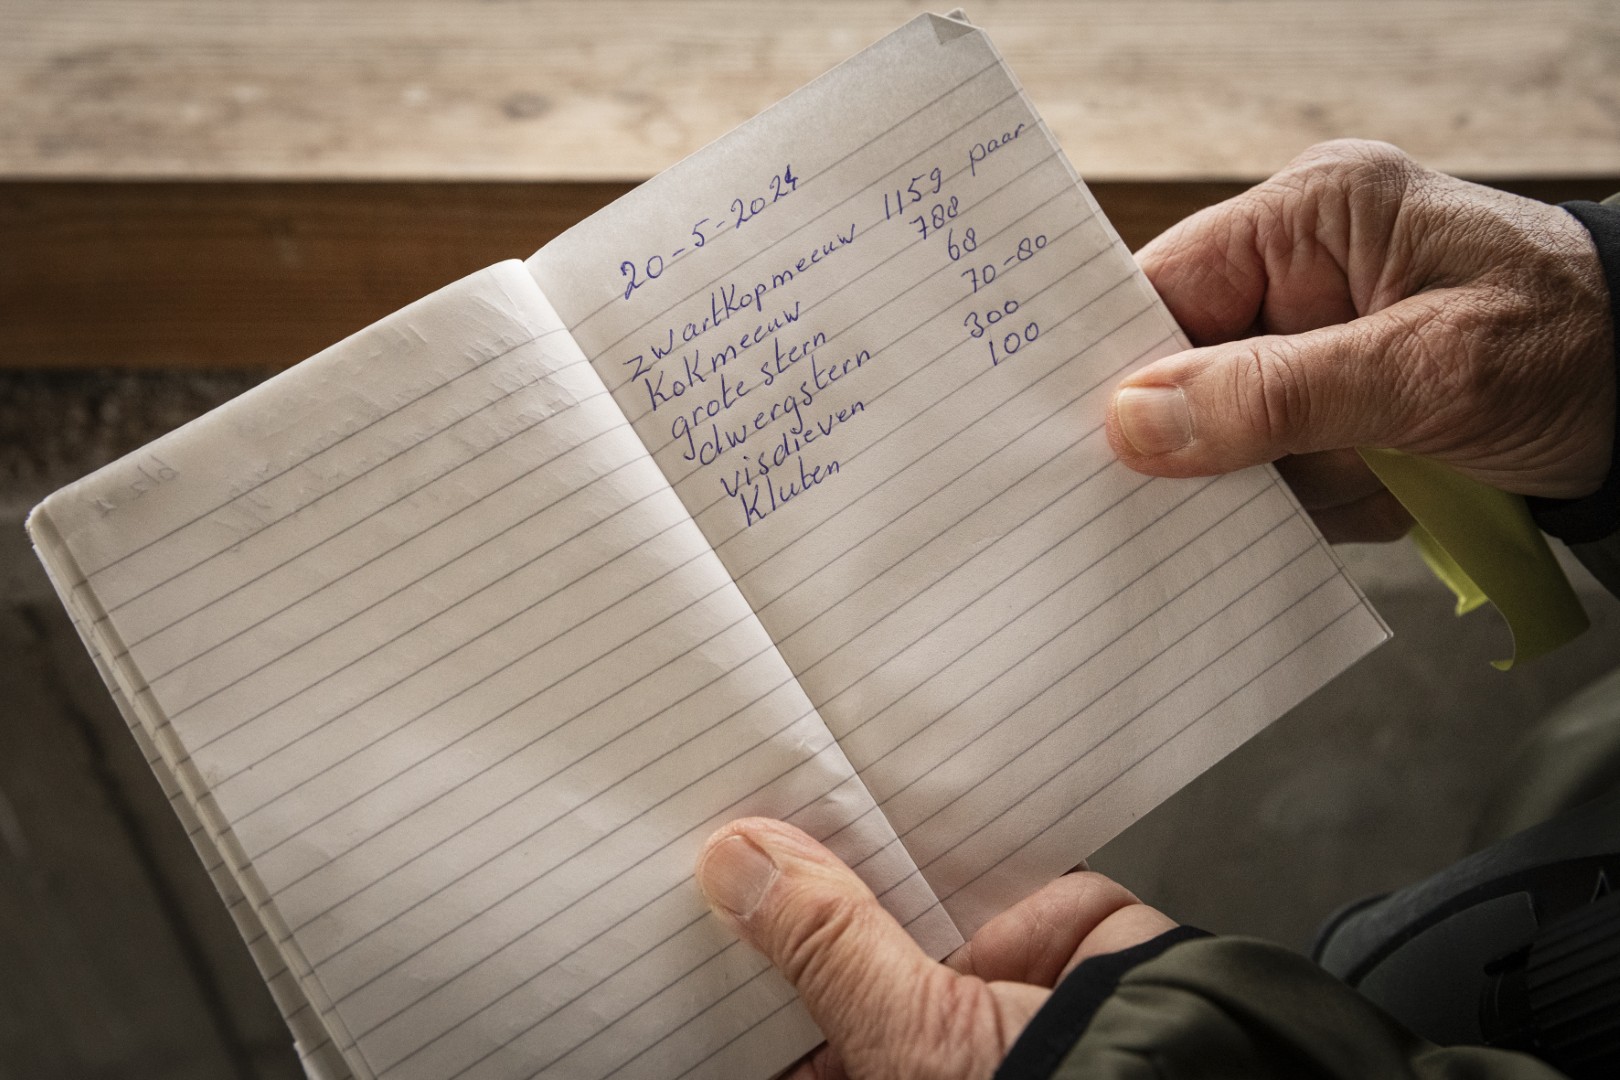 20-5-2024
zwartkopmeeuw 1159 paar
Kokmeeuw 788
grote stern 68
dwergstern 70-80
visdieven 300
Kluten 100